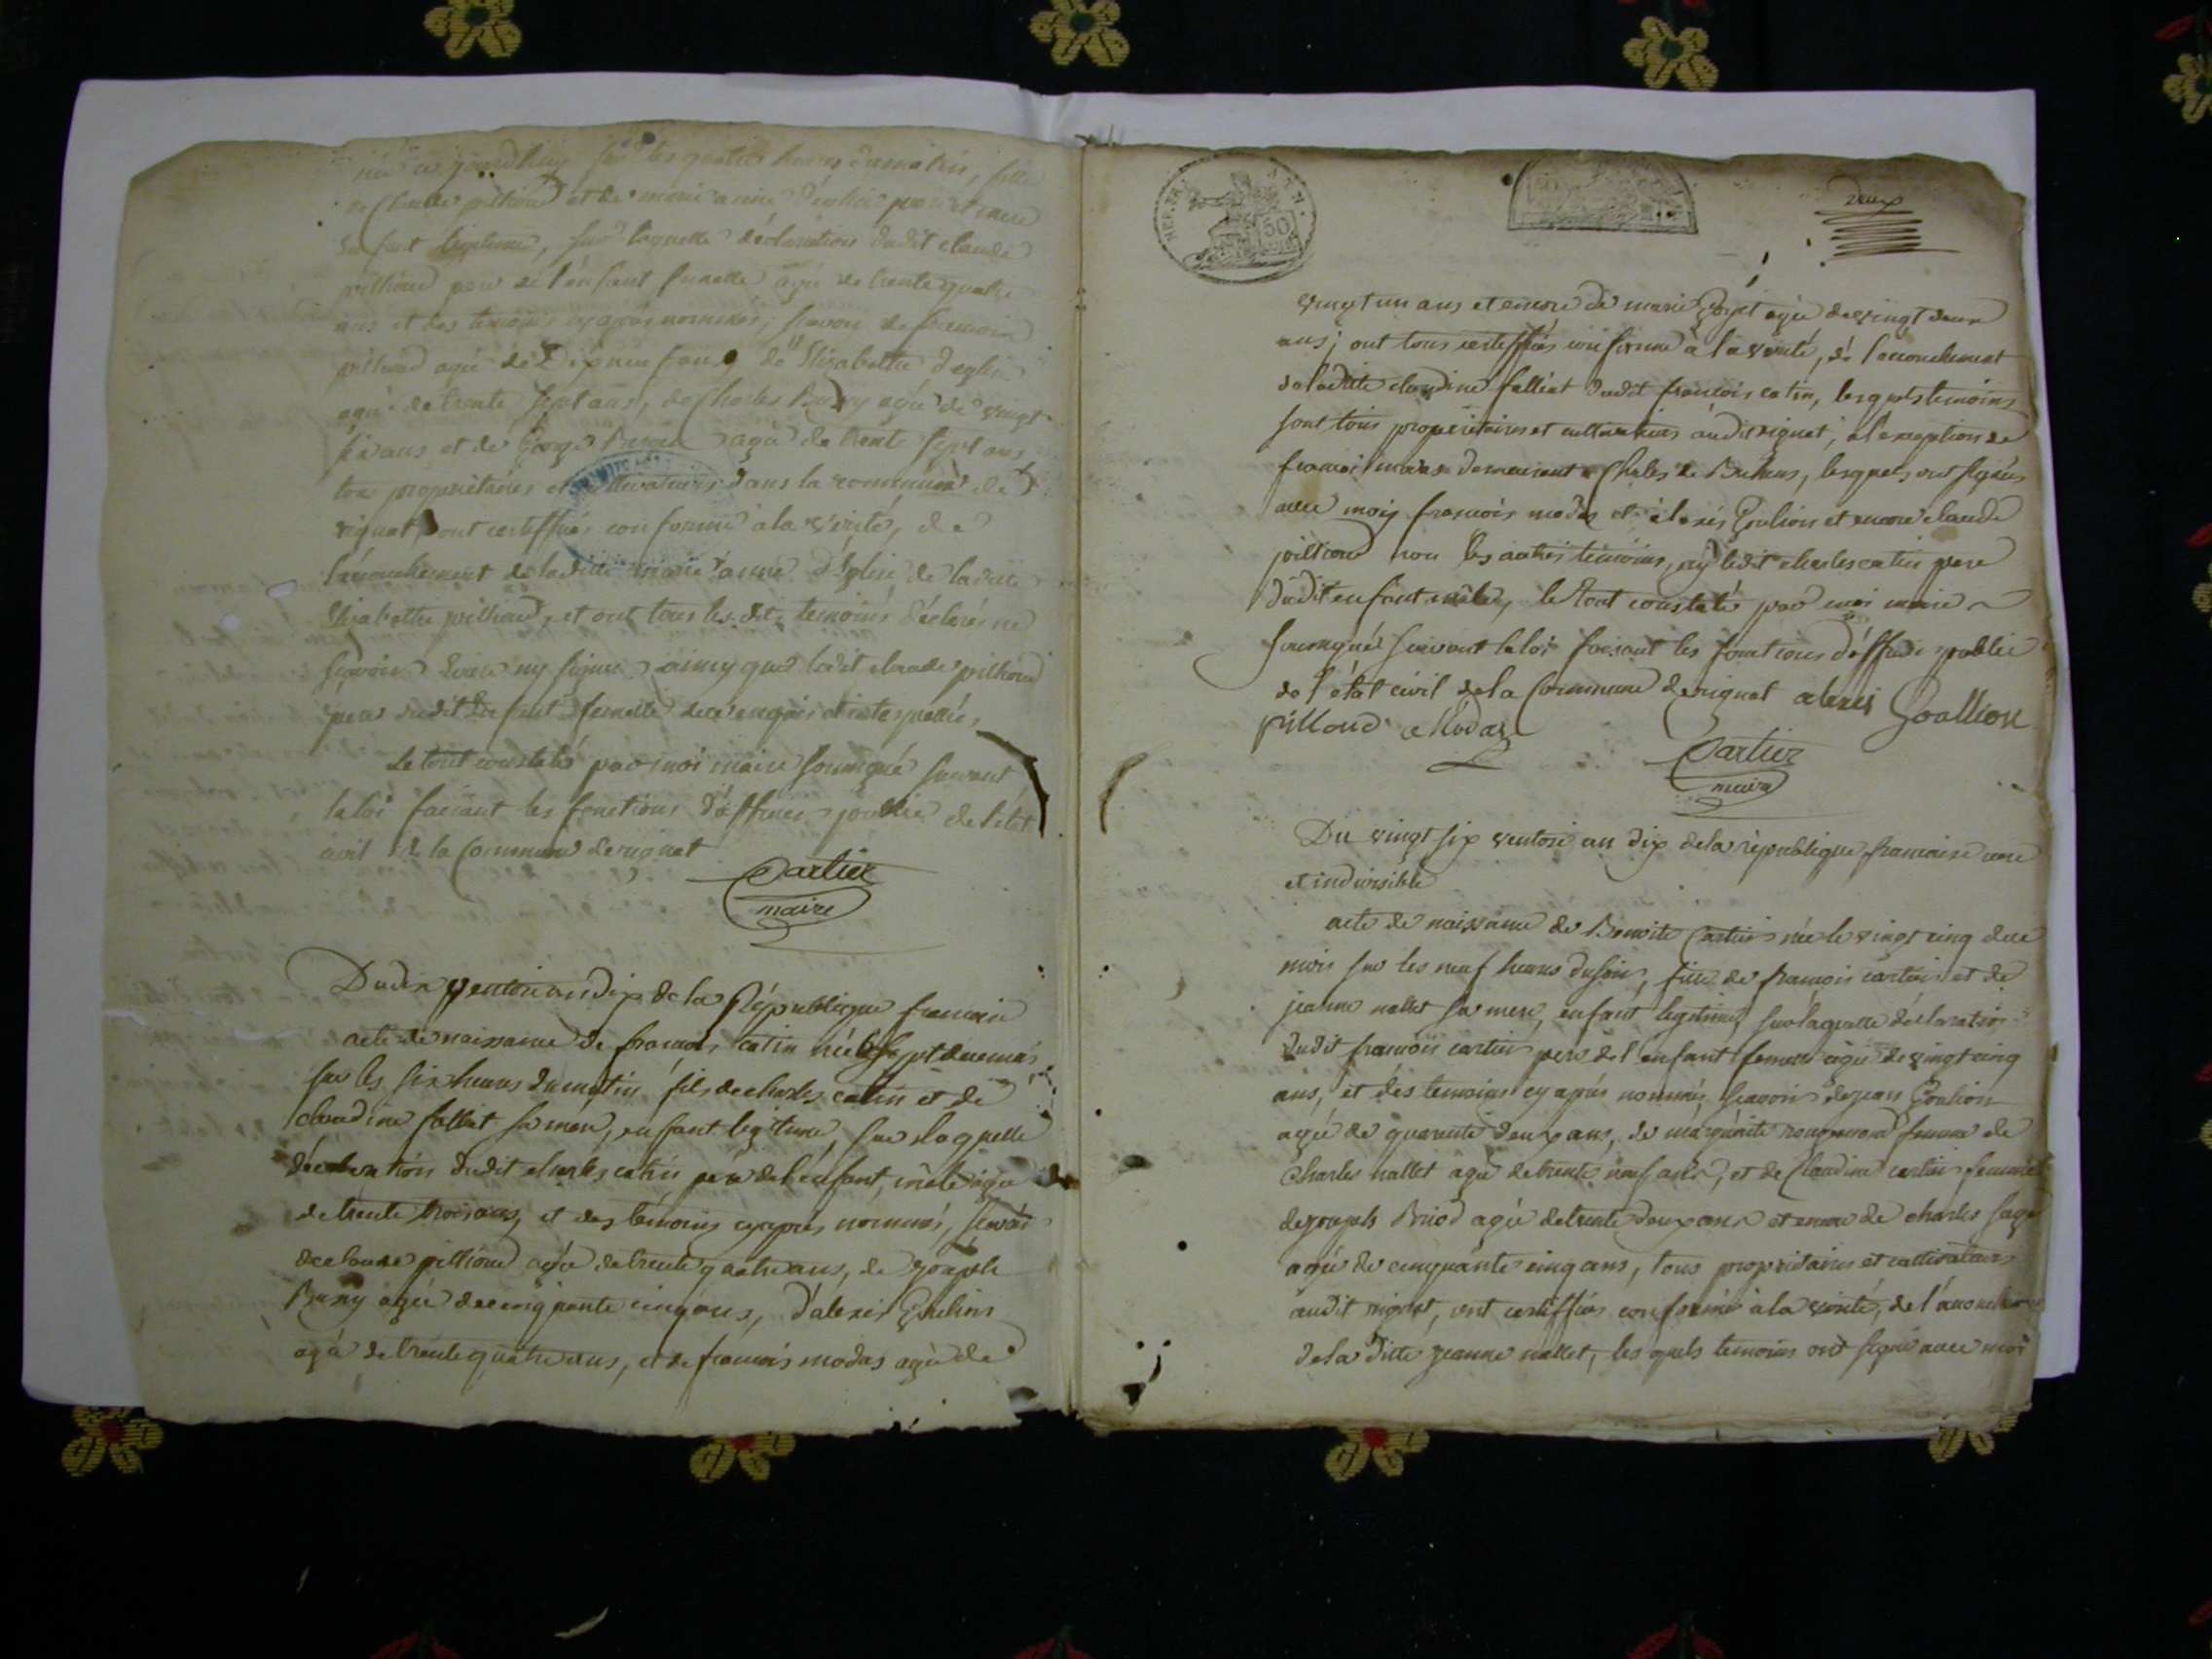 née ce jourdhuy sur les quatre heures du matin, fille
de Claude pilliond et de marie anne Déglise père et mère
Enfant légitime, sur laquelle déclaration dudit claude
pilliond pere de l'enfant femelle agé de trente quatre
ans et des temoins cyaprès nommés, scavoir de francois
pilliond agé de Dixneuf ans de Elizabethe deglise
agée de trente sept ans, de Charles Buzy agé de vingt
six ans et de agé de trente sept ans,
tous propriétaires et cultivateurs dans la commune de
rignat, ont certiffiés conforme à la vérité, de
l'acouchement de laditte marie anne Déglise de laditte
Elizabethe pilliond, et ont tous lesdits temoins déclarés ne
scavoir Ecrire ny signer ainsy que ledit claude pilliond
pere dudit Enfant femelle de ce enquis et interpellés,
Le tout constaté par moi maire soussigné suivant
la loi faisant les fonctions d'officier public de l'état
civil de la Commune de rignat
Cartier
maire
Du dix ventose an dix de la République francaise
acte de naissance de francois catin né le sept du mois
sur les six heures du matin fils de charles catin et de
claudine falliat sa mere, enfant légitime, sur laquelle
déclaration dudit charles catin pere de l'enfant mâle agé
de trente trois ans, et des témoins cyaprès nommés, scavoir
de claude pilliond agé de trente quatre ans, de joseph
Buzy agé de cinquante cinq ans, d'alexis Goulion
agé de trente quatre ans, et de francois modas agé de
REP. FRA.
50
deux
vingt un ans et encore de marie Goyet agée de vingt deux
ans; ont tous certiffiés conforme à la vérité, de l'acouchement
de laditte claudine falliat dudit francois catin, lesquels temoins
sont tous propriétaires et cultivateurs audit rignat, à l'exception de
francois modas demeurant à lesquels ont signés
avec moy francois modas et alexis Goulion et encore claude
pilliond non les autres témoins, ny ledit charles catin pere
dudit enfant mâle, le tout constaté par moi maire
soussigné suivant la loi faisant les fonctions d'officier public
de l'état civil de la Commune de rignat alexis Goallion
pilloud Modas
Cartier
maire
Du vingt six ventose an dix de la république francaise une
et indivisible
acte de naissance de Benoite Cartier née le vingt cinq duce
mois sur les neuf heures du soir, fille de francois cartier et de
jeanne nallet sa mere, enfant légitime, sur laquelle déclaration
dudit francois cartier pere de l'enfant femelle agé de vingt cinq
ans, et des temoins cy après nommés, scavoir de jean Goulion
agé de quarente deux ans, de marguérite femme de
Charles nallet agée de trente neuf ans, et de Claudine cartier femme
de joseph Briod agée de trente deux ans et encore de charles sage
agé de cinquante cinq ans, tous propriétaires et cultivateurs
audit rignat, ont certiffiés conforme à la vérité, de l'acouchement
de la ditte jeanne nallet, les quels temoins ont signé avec moi